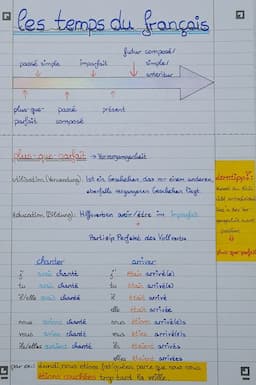 les temps du français
futur composé/
passé simple imparfait simple/
antérieur
plus-que- passé présent
parfait composé
plus-que-parfait → Vorvergangenheit
utilisation (Verwendung): Ist ein Geschehen, das vor einem anderen,
ebenfalls vergangenen Geschehen liegt.
Hilfsverben avoir/être im imparfait
+
Partizip Perfekt des Vollverbs
chanter arriver
j' avais chanté j' étais arrivé(e)
tu avais chanté tu étais arrivé(e)
il/elle avait chanté il était arrivé
elle était arrivée
nous avions chanté nous étions arrivé(e)s
vous aviez chanté vous étiez arrivé(e)s
ils/elles avaient chanté ils étaient arrivés
elles étaient arrivées
par ex.: Lundi, nous étions fatiguées, parce que nous nous
étions couchées trop tard la veille.
plus-que-parfait